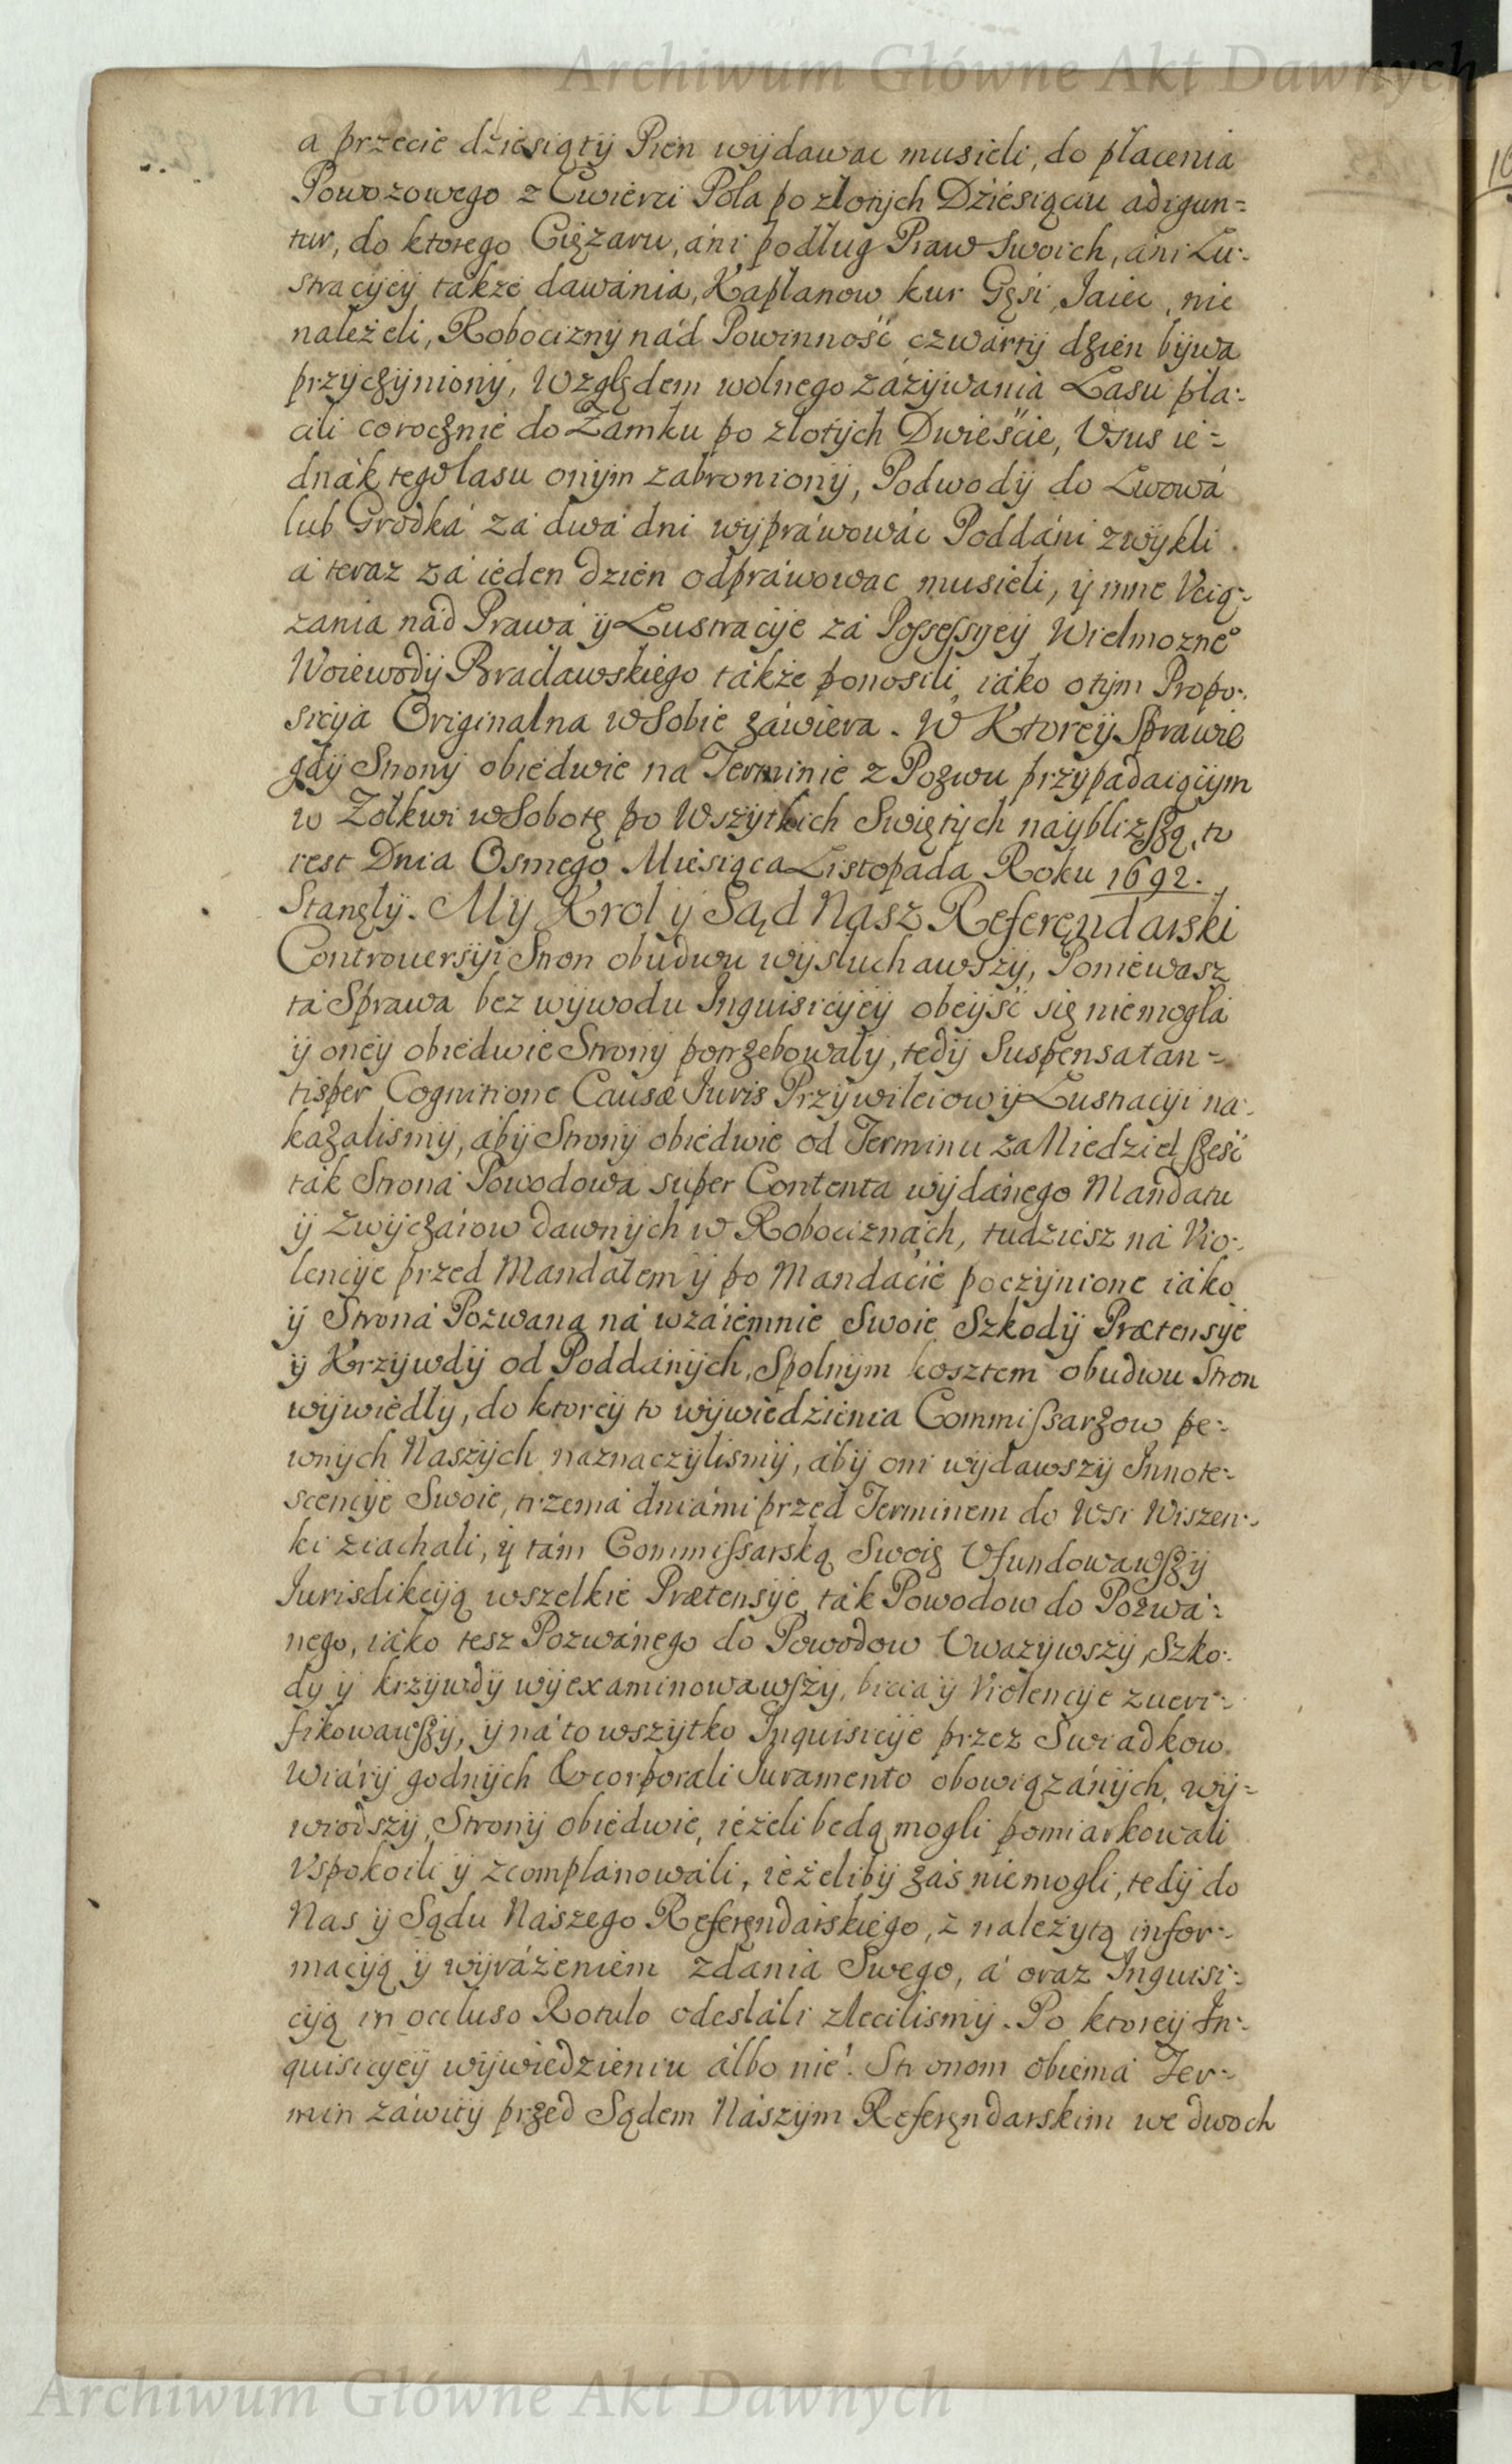 Archiwum Główne Akt Dawnych
a przecie dziesiąty Pień wydawac musieli, do płacenia
Powozowego z Cwierci Pola po złotych Dziesiąciu adigun=
tur, do ktorego Ciężaru, áni podług Praw Swoich, áni Lu=
stracyey także dawánia, Kapłanow kur Gęsi, Jaiec, nie
należeli, Robocizny nád Powinność czwárty dzień bywa
przyczyniony, Względem wolnego záżywánia Lasu pła=
cili corocznie do Zamku po złotych Dwieście, Usus ie=
dnák tego lasu onym zabroniony, Podwody do Lwowá
lub Grodká zá dwá dni wypráwowác Poddáni zwykli
á teraz zá ieden dzień odpráwowac musieli, y inne Ucią=
zania nád Prawá y Lustracye zá Possessyey Wielmozne°
Woiewody Bracławskiego tákże ponosili, iáko o tym Propo=
sicya Originalna w Sobie záwiera. W Ktorey Spráwie
gdy Strony obiedwie na Terminie z Pozwu przypadaiącym
w Zołkwi w Sobotę po Wszytkich Swiętych náybliższą, to
iest Dnia Osmego Miesiąca Listopada Roku 1692.
Stanęły. My Krol y Sąd Nasz Referęndarski
Controuersyi Stron obudwu wysłuchawszy, Poniewasz
tá Sprawa bez wywodu Inquisicyey obeyść się niemogła
y oney obiedwie Strony potrzebowały, tedy Suspensa tan=
tisper Cognitione Causæ Iuris Przywileiow y Lustracyi na=
kazalismy, áby Strony obiedwie od Terminu za Niedziel sześć
ták Strona Powodowa super Contenta wydánego Mandatu
y zwyczáiow dawnych w Robociznách, tudziesz ná Vio=
lencye przed Mandatem y po Mandacie poczynione iáko
y Strona Pozwaną ná wzáiemnie Swoie Szkody Prætensye
y Krzywdy od Poddánych, Spolnym kosztem obudwu Stron
wywiedły, do ktorey to wywiedzienia Commissarzow pe=
wnych Naszych naznaczylismy, áby oni wydawszy Innote=
scencye Swoie, trzemá dniámi przed Terminem do Wsi Wiszen=
ki ziachali, y tám Commissarską Swoię Ufundowawszy
Iurisdikcyą wszelkie Prætensye, ták Powodow do Pozwá=
nego, iáko tesz Pozwánego do Powodow Uwazywszy, Szko=
dy y krzywdy wyexaminowawszy, bicia y Violencye zueri=
fikowawszy, y ná to wszytko Inquisicye przez Swiadkow
Wiáry godnych & corporali Iuramento obowiązánych, wy=
wiodszy, Strony obiedwie, ieżeli bedą mogli pomiarkowali
Uspokoili y zcomplánowáli, ieżeliby zás niemogli, tedy do
Nas y Sądu Nászego Referęndarskiego, z należytą infor=
macyą y wyráżeniem zdánia Swego, á oraz Inquisi=
cyą in occluso Rotulo odesłáli zlecilismy. Po ktorey In=
quisicyey wywiedzieniu álbo nie. Stronom obiemá Ter=
min záwity przed Sądem Nászym Referęndarskim we dwoch
Archiwum Główne Akt Dawnych